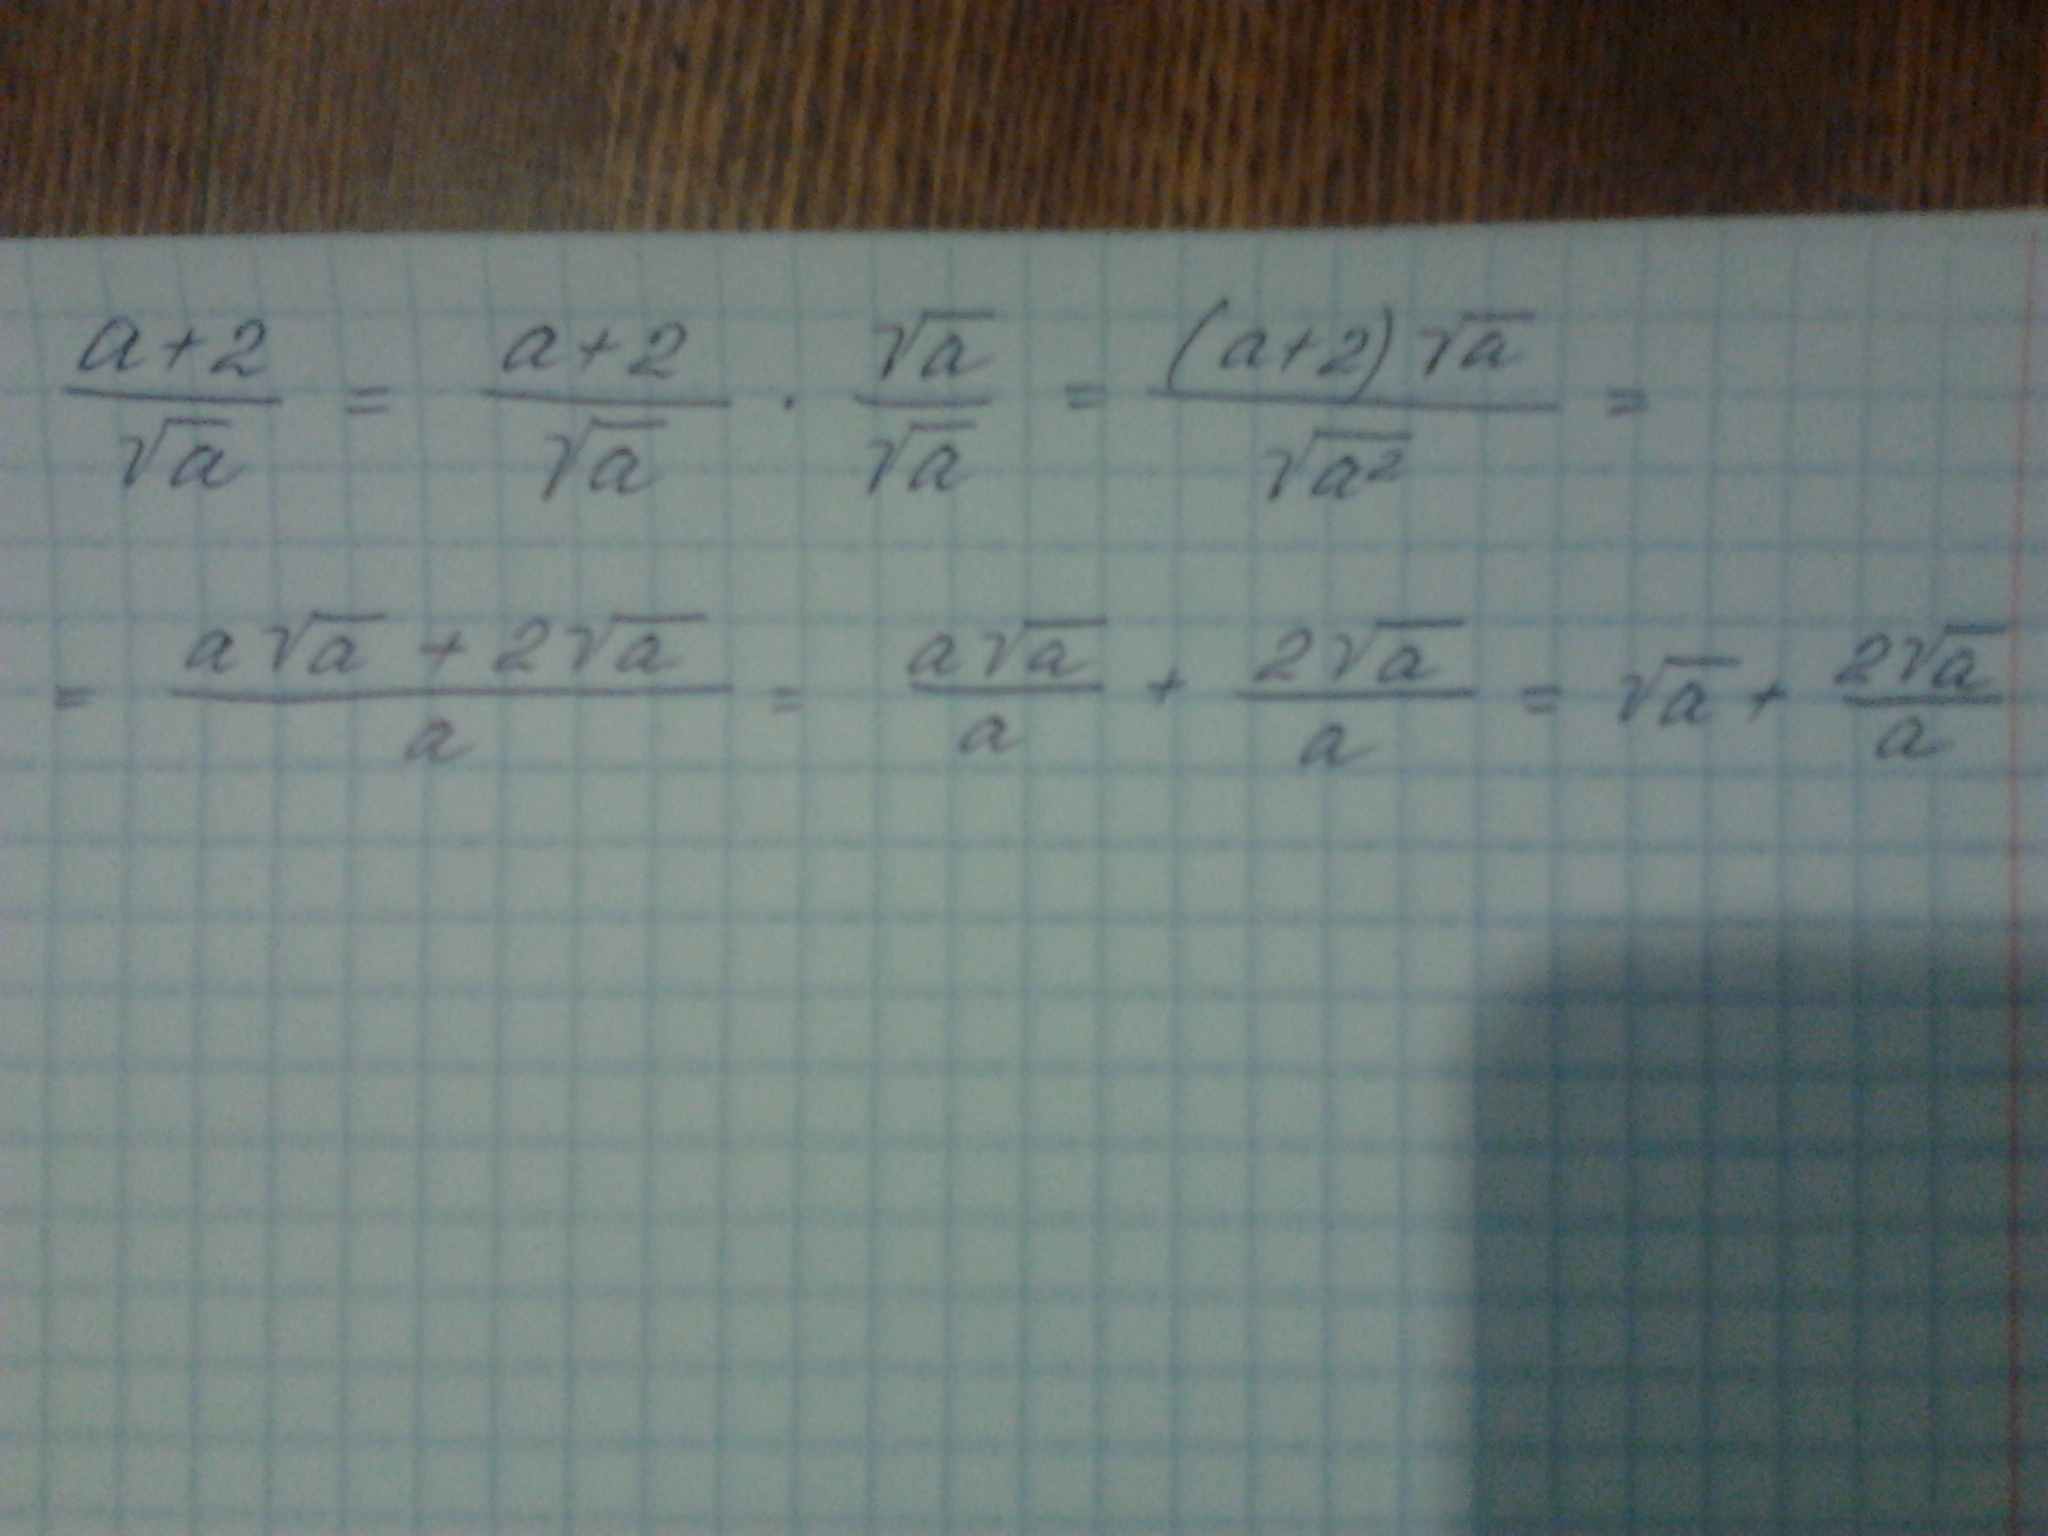 \frac{a+2}{\sqrt{a}} = \frac{a+2}{\sqrt{a}} \cdot \frac{\sqrt{a}}{\sqrt{a}} = \frac{(a+2)\sqrt{a}}{\sqrt{a^2}} =
= \frac{a\sqrt{a} + 2\sqrt{a}}{a} = \frac{a\sqrt{a}}{a} + \frac{2\sqrt{a}}{a} = \sqrt{a} + \frac{2\sqrt{a}}{a}